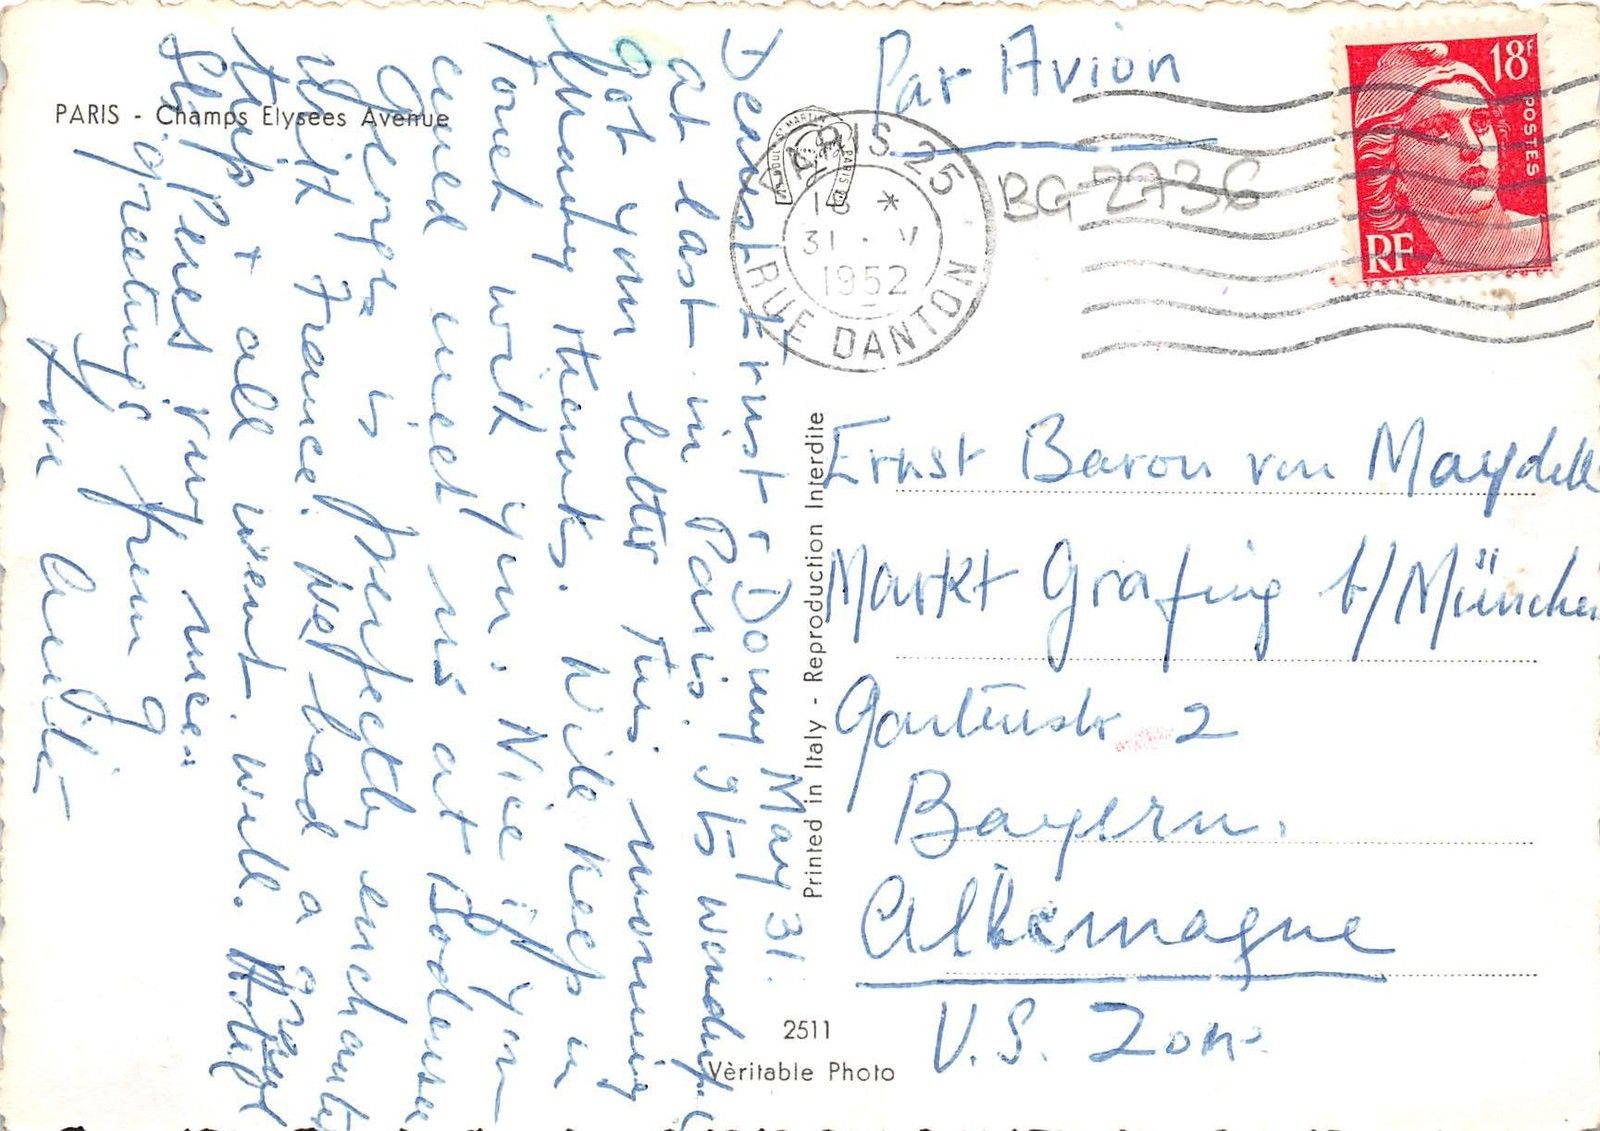 PARIS - Champs Elysees Avenue
Par Avion
BG 2736
18F
POSTES
RF
PARIS 25
18 *
31 · V
1952
RUE DANTON
Dear Ernst + Domy May 31.
at last in Paris. It's wonderful
Got your letter this morning
Many thanks. Will keep in
touch with you. Nice if you
could meet us at Bodensee
George is perfectly enchanted
with France. We had a good
trip + all went well. Hotel
Sts Pères very nice.
greetings from
Love
Ernst Baron von Maydell
Markt Grafing b/München
Gartenstr 2
Bayern.
Allemagne
U.S. Zone
Printed in Italy - Reproduction Interdite
2511
Vèritable Photo